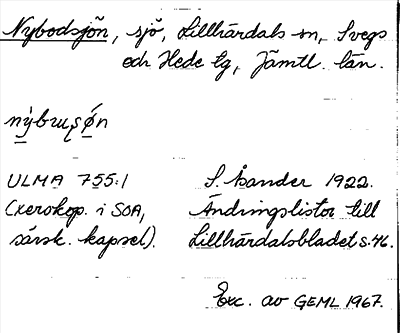 Nybodsjön, sjö, Lillhärdals sn, Svegs
och Hede tg, Jämtl. län.
nỳbuʂǿn
ULMA 755:1 S. Åsander 1922.
(xerokop. i SOA, Ändringslistor till
särsk. kapsel). Lillhärdalsbladet s. 46.
Exc. av GEML 1967.